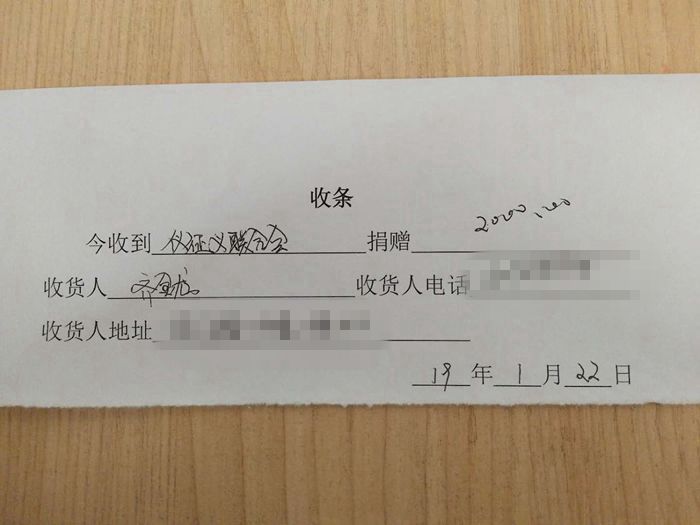 收条
今收到 仪征义联合会 捐赠 2000.00
收货人 齐 收货人电话
收货人地址
19 年 1 月 22 日